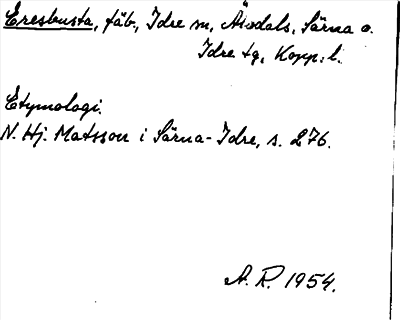 Eresbusta, fäb., Idre sn, Älvdals, Särna o.
Idre tg, Kopp. l.
Etymologi.
N. Hj. Matsson i Särna-Idre, s. 276.
A. R. 1954.